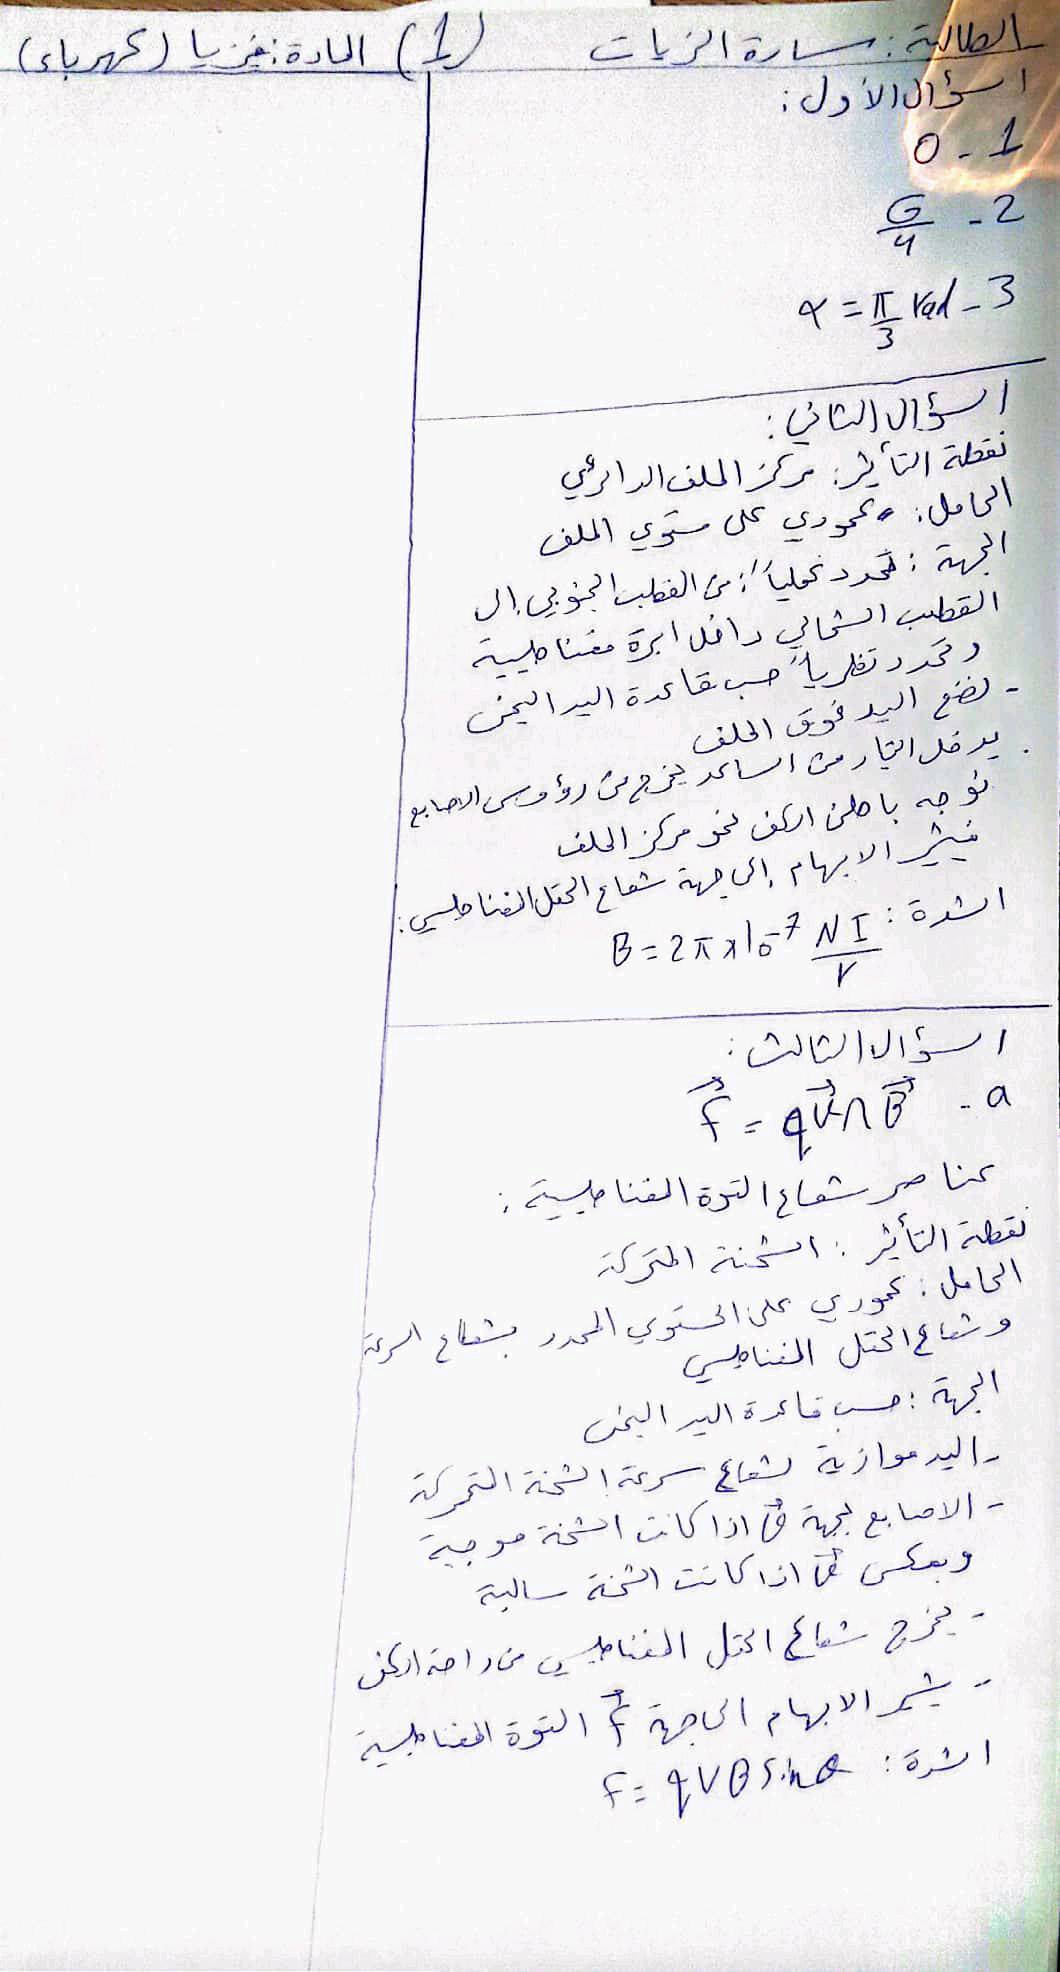 الطالبة: سارة الزيات (1) المادة: فيزيا (كهرباء)
السؤال الأول:
1 - 0
2 - G/4
3 - α = π/3 rad
السؤال الثاني:
نقطة التأثير: مركز الملف الدائري
الحامل: عمودي على مستوي الملف
الجهة: تحدد عملياً: من القطب الجنوبي إلى
القطب الشمالي داخل ابرة مغناطيسية
وتحدد نظرياً حسب قاعدة اليد اليمنى
- نضع اليد فوق الملف
. يدخل التيار من الساعد يخرج من رؤوس الاصابع
نوجه باطن الكف نحو مركز الملف
فيشير الابهام إلى جهة شعاع الحقل المغناطيسي:
الشدة: B = 2π x 10⁻⁷ NI/r
السؤال الثالث:
a - F⃗ = qV⃗ ∧ B⃗
عناصر شعاع القوة المغناطيسية:
نقطة التأثير: الشحنة المتحركة
الحامل: عمودي على المستوي المحدد بشعاع السرعة
وشعاع الحقل المغناطيسي
الجهة: حسب قاعدة اليد اليمنى
- اليد موازية لشعاع سرعة الشحنة المتحركة
- الاصابع بجهة v⃗ اذا كانت الشحنة موجبة
وبعكس v⃗ اذا كانت الشحنة سالبة
- يخرج شعاع الحقل المغناطيسي من راحة الكف
- يشير الابهام الى جهة F⃗ القوة المغناطيسية
الشدة: F = qVB sin θ